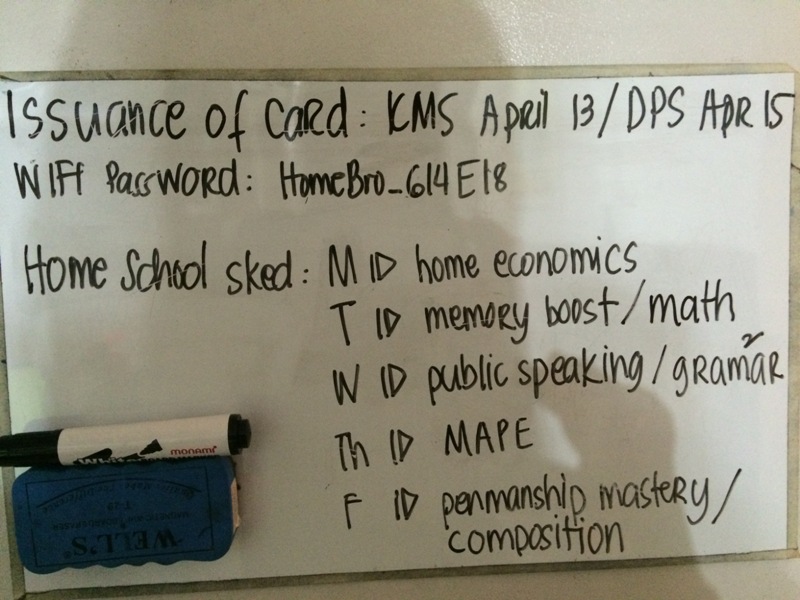 Issuance of card: KMS April 13/DPS APR 15
WIFI PassWORD: HomeBro_614E18
Home School sked: M ID home economics
T ID memory boost/math
W ID public speaking/gramar
Th ID MAPE
F ID penmanship mastery/
composition
monami
WELL'S